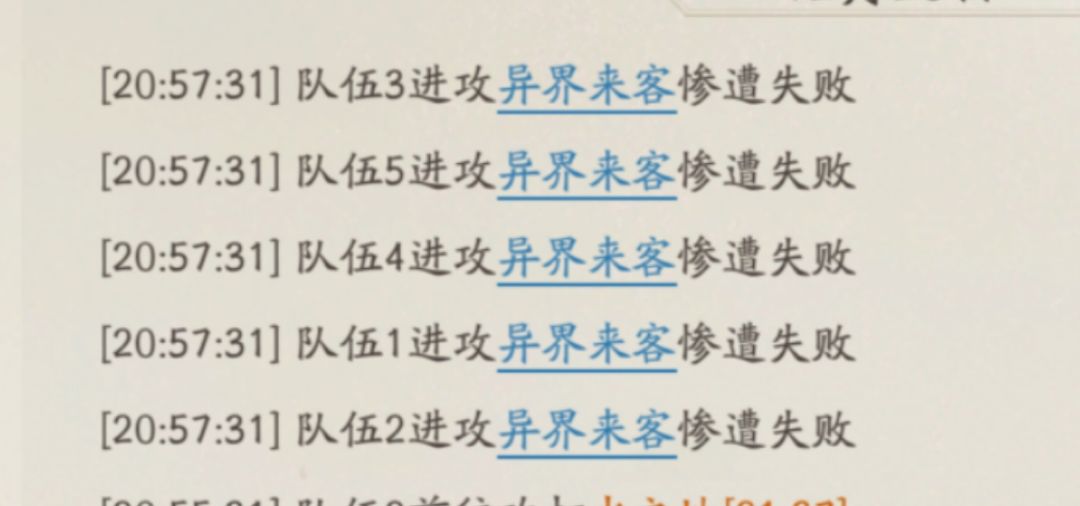 [20:57:31] 队伍3进攻异界来客惨遭失败
[20:57:31] 队伍5进攻异界来客惨遭失败
[20:57:31] 队伍4进攻异界来客惨遭失败
[20:57:31] 队伍1进攻异界来客惨遭失败
[20:57:31] 队伍2进攻异界来客惨遭失败